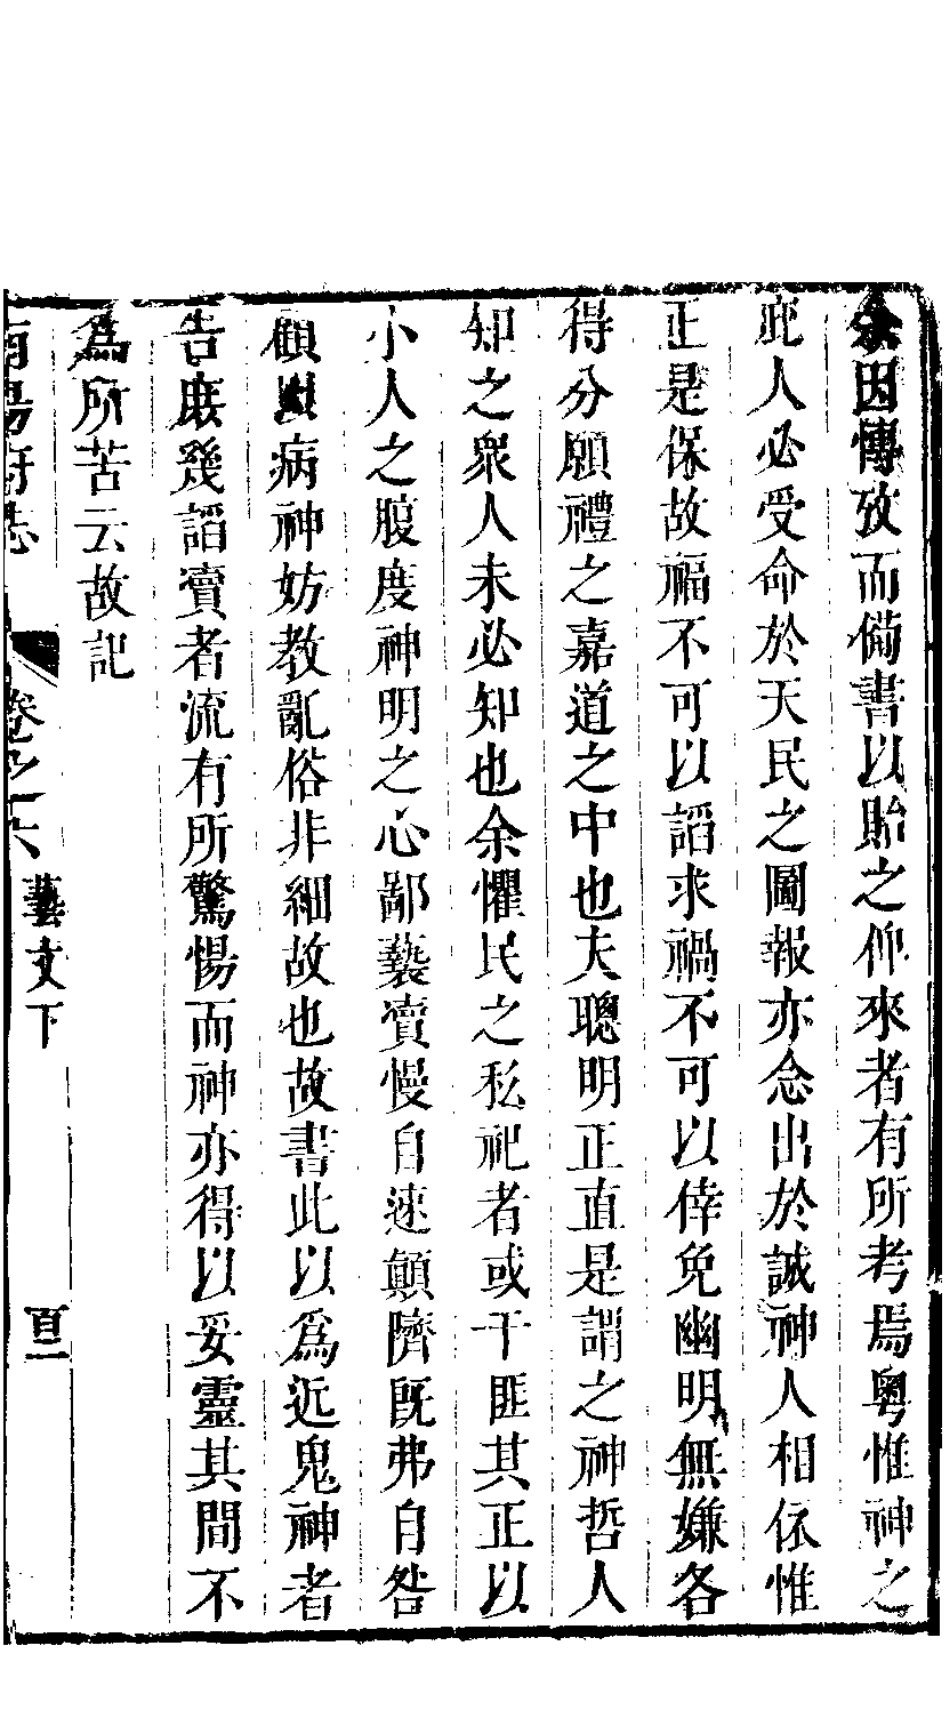 余因博攷而備書以貽之仰來者有所考焉粵惟神之
庇人必受命於天民之圖報亦念出於誠神人相依惟
正是保故福不可以謟求禍不可以倖免幽明無嫌各
得分願禮之嘉道之中也夫聰明正直是謂之神哲人
知之衆人未必知也余懼民之私祀者或干匪其正以
小人之腹度神明之心鄙藝瀆慢自速顛隮旣弗自咎
顧以病神妨教亂俗非細故也故書此以爲近鬼神者
告庶幾謟賣者流有所驚惕而神亦得以妥靈其間不
爲所苦云故記
南陽府志 卷之六 藝文下 百二